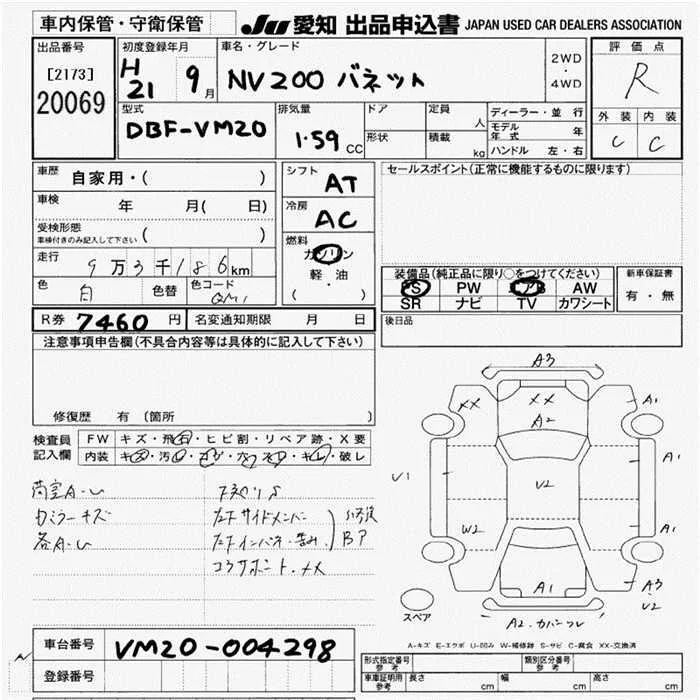 車内保管・守衛保管
JU 愛知 出品申込書 JAPAN USED CAR DEALERS ASSOCIATION
出品番号
[2173]
20069
初度登録年月
H 21 9月
車名・グレード
NV200 バネット
2WD
・
4WD
評価点
R
外装 内装
C C
型式
DBF-VM20
排気量
1.59 CC
ドア
形状
定員 人
積載 kg
ディーラー・並 行
モデル年式 年
ハンドル 左・右
車歴
自家用・( )
車検 年 月( 日)
受検形態
車検付きのみ記入して下さい ( )
走行
9万3千186km
色 白 色替 色コード QM1
シフト
AT
冷房
AC
燃料
ガソリン
軽・油
( )
セールスポイント(正常に機能するものに限ります)
装備品(純正品に限り○をつけてください)
PS PW エアB AW
SR ナビ TV カワシート
新車保証書
有・無
R券 7460円 名変通知期限 月 日
後日品
注意事項申告欄(不具合内容等は具体的に記入して下さい)
修復歴 有〔箇所 〕
検査員
記入欄
FW キズ・飛石・ヒビ割・リペア跡・X要
内装 キズ・汚レ・コゲ・穴・ネジ・キレ・破レ
A・U
ミラーキズ
各A・U
左下サイドメンバー
コアサポート・XX
BP
A3
XX
XX
A2
A1
A1
U1
U2
W2
A1
A1
A3
U2
スペア
A2・カバーワレ
A-キズ E-エクボ U-凹み W-補修跡 S-サビ C-腐食 XX-交換済
車台番号 VM20-004298
登録番号
形式指定番号
参考
類別区分番号
参考
車庫証明用
参考
長さ cm 幅 cm 高さ cm